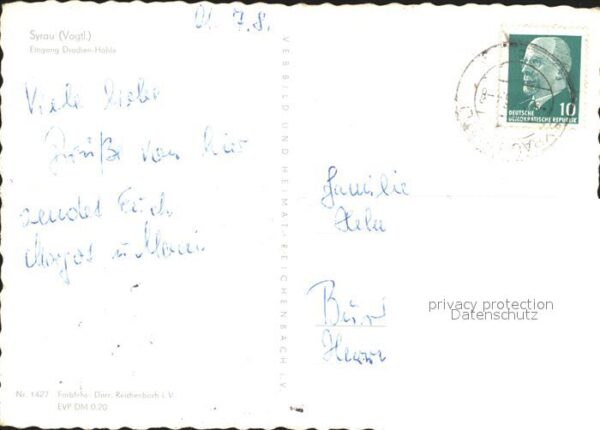 Syrau (Vogtl.)
Eingang Drachen-Höhle
7. 8.
Viele liebe
Grüße von hier
sendet Euch
Margot u.
VEB BILD UND HEIMAT · REICHENBACH i. V.
DEUTSCHE
DEMOKRATISCHE REPUBLIK
10
Familie
privacy protection
Datenschutz
Nr. 1427 Farbfoto: Darr, Reichenbach i. V.
EVP DM 0.20